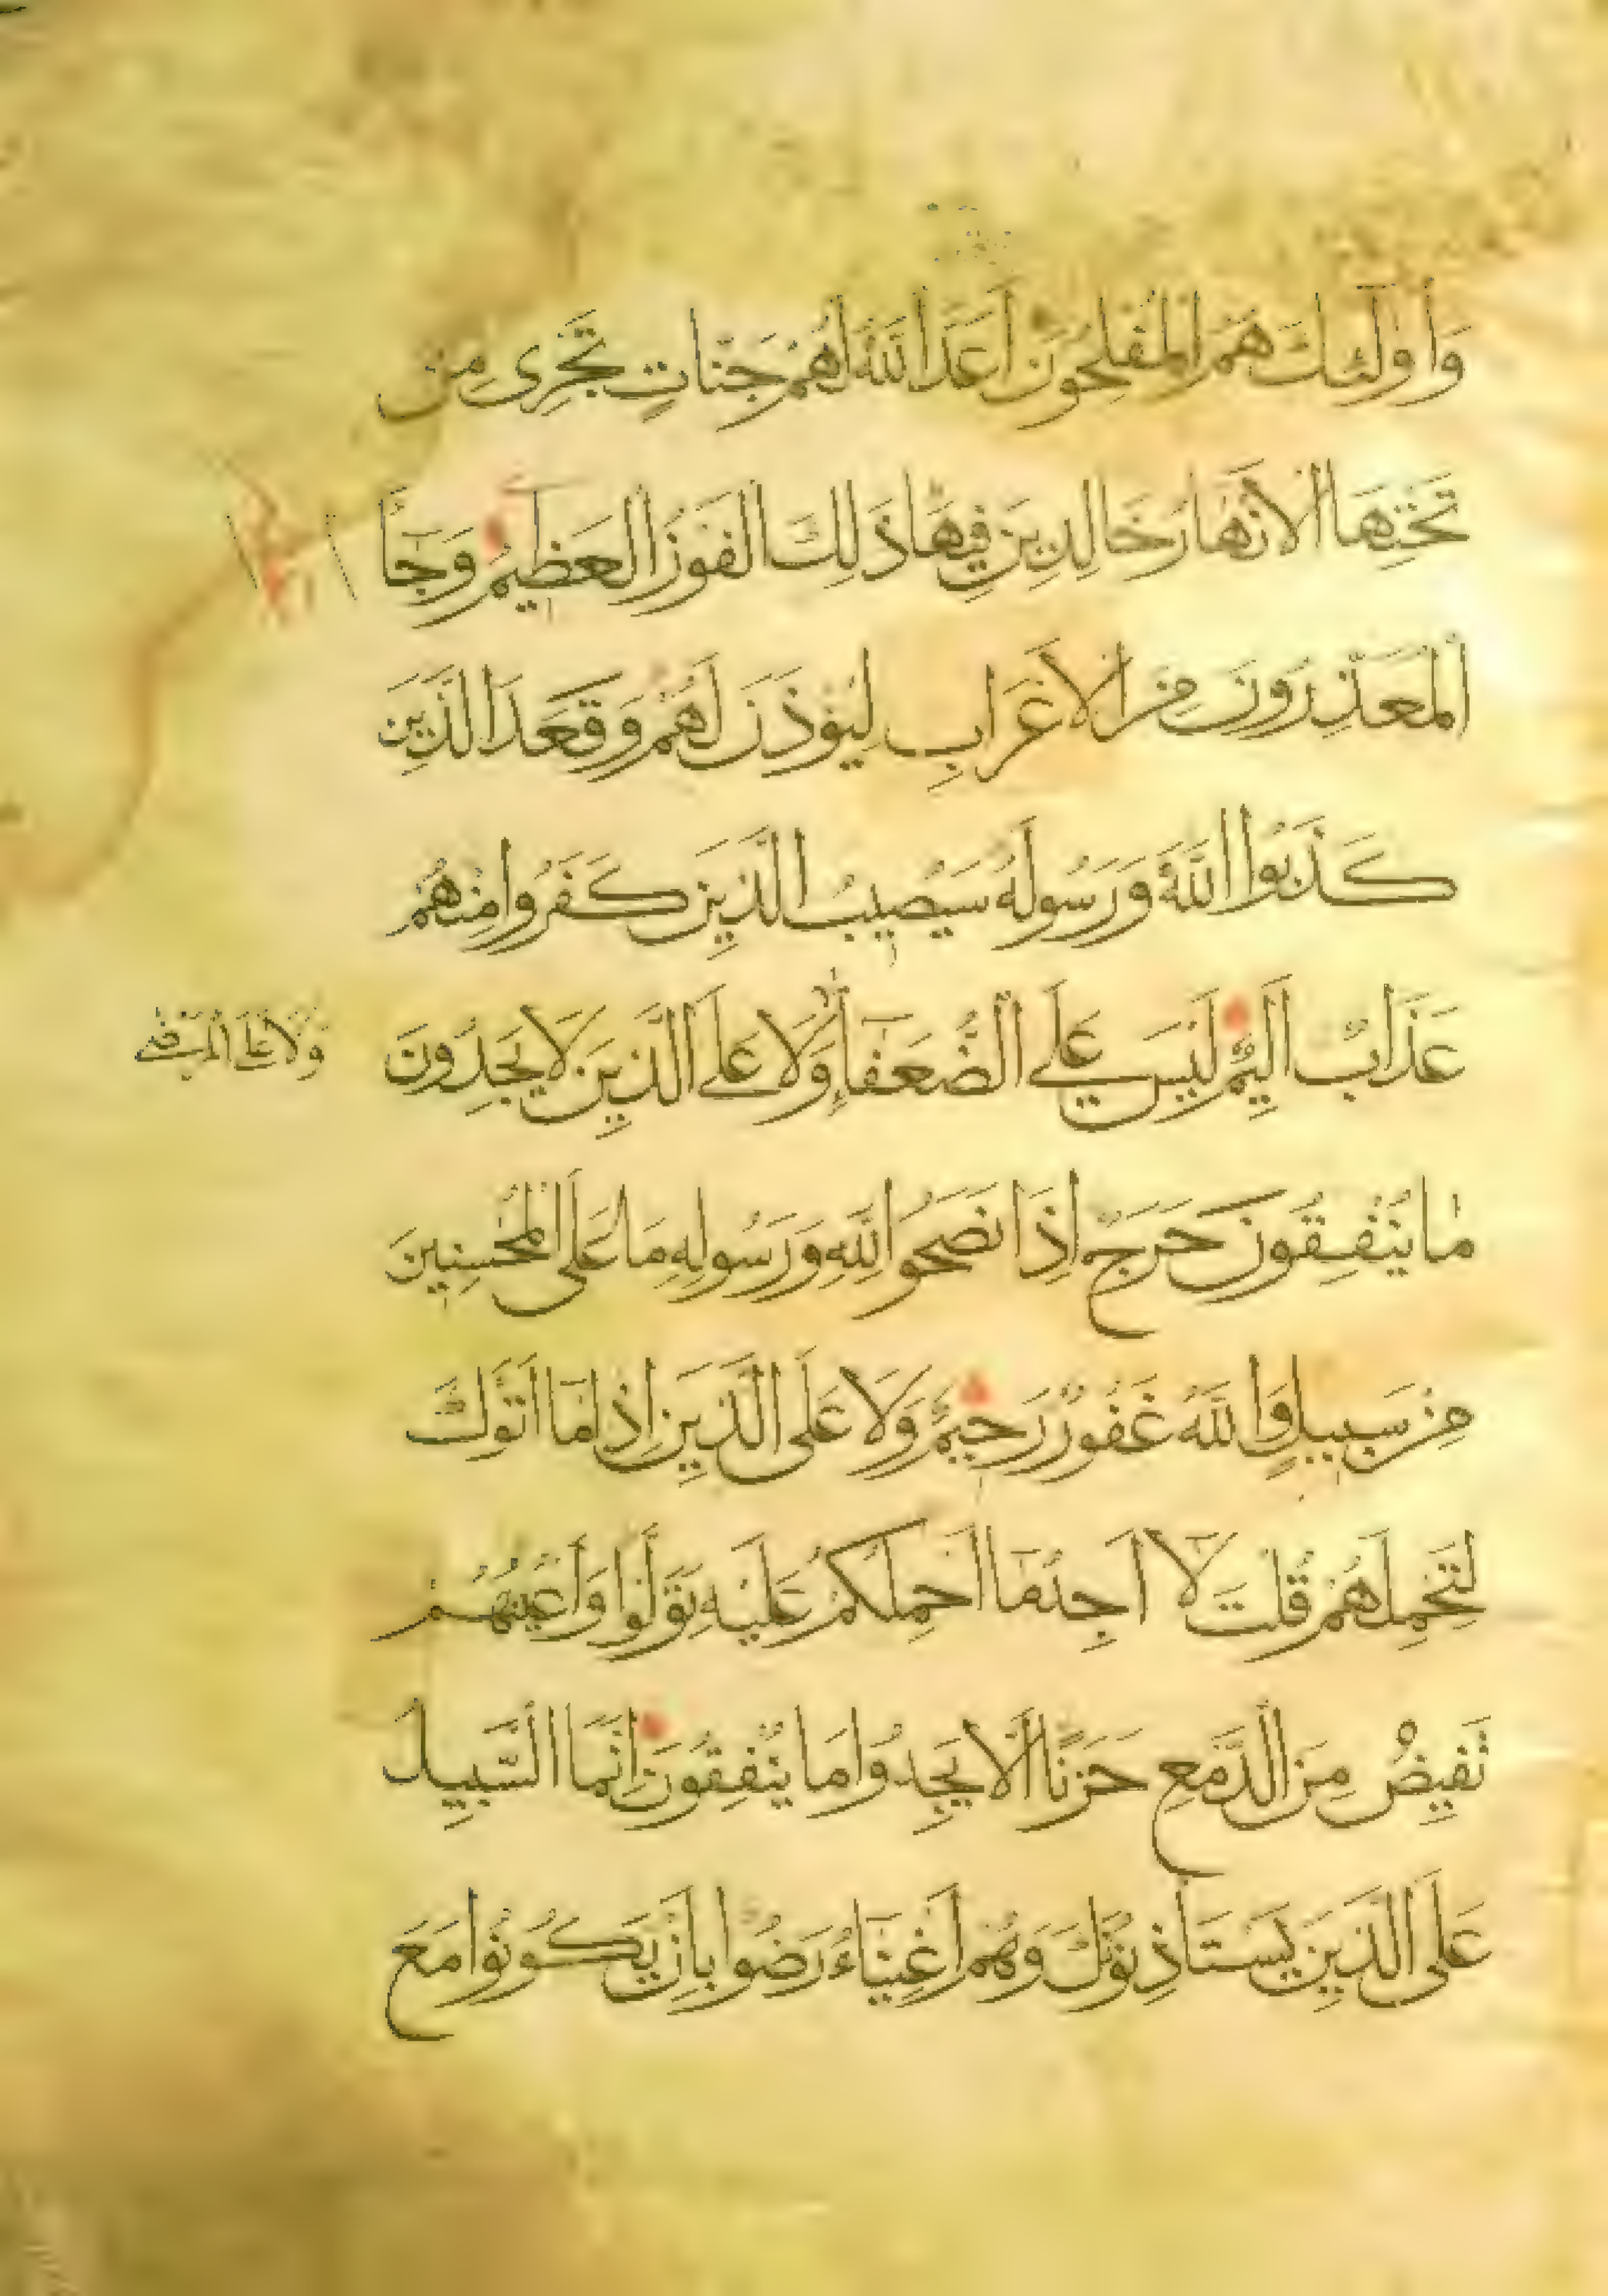 وَأُولَٰٓئِكَ هُمُ الْمُفْلِحُونَ أَعَدَّ اللَّهُ لَهُمْ جَنَّاتٍ تَجْرِى مِنْ
تَحْتِهَا الْأَنْهَارُ خَالِدِينَ فِيهَا ذَلِكَ الْفَوْزُ الْعَظِيمُ وَجَآءَ
الْمُعَذِّرُونَ مِنَ الْأَعْرَابِ لِيُؤْذَنَ لَهُمْ وَقَعَدَ الَّذِينَ
كَذَبُوا اللَّهَ وَرَسُولَهُ سَيُصِيبُ الَّذِينَ كَفَرُوا مِنْهُمْ
عَذَابٌ أَلِيمٌ لَيْسَ عَلَى الضُّعَفَآءِ وَلَا عَلَى الَّذِينَ لَا يَجِدُونَ
وَلَا عَلَى الْمَرْضَى
مَا يُنْفِقُونَ حَرَجٌ إِذَا نَصَحُوا لِلَّهِ وَرَسُولِهِ مَا عَلَى الْمُحْسِنِينَ
مِنْ سَبِيلٍ وَاللَّهُ غَفُورٌ رَحِيمٌ وَلَا عَلَى الَّذِينَ إِذَا مَا أَتَوْكَ
لِتَحْمِلَهُمْ قُلْتَ لَآ أَجِدُ مَآ أَحْمِلُكُمْ عَلَيْهِ تَوَلَّوْا وَأَعْيُنُهُمْ
تَفِيضُ مِنَ الدَّمْعِ حَزَنًا أَلَّا يَجِدُوا مَا يُنْفِقُونَ إِنَّمَا السَّبِيلُ
عَلَى الَّذِينَ يَسْتَأْذِنُونَكَ وَهُمْ أَغْنِيَآءُ رَضُوا بِأَنْ يَكُونُوا مَعَ